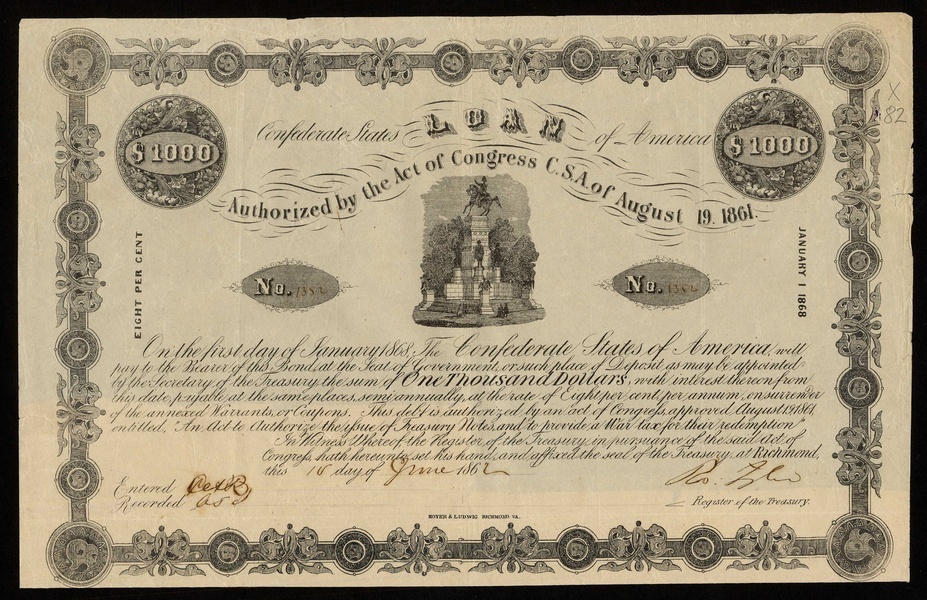 Confederate States LOAN of America
Authorized by the Act of Congress C.S.A. of August 19. 1861.
$1000
$1000
X
82
EIGHT PER CENT
JANUARY 1 1868
No. 1382
No. 1382
On the first day of January 1868, The Confederate States of America, will
pay to the Bearer of this Bond, at the Seat of Government, or such place of Deposit as may be appointed
by the Secretary of the Treasury the sum of One Thousand Dollars, with interest thereon from
this date payable at the same places, semi annually, at the rate of Eight per cent, per annum, on surrender
of the annexed Warrants, or Coupons. This debt is authorized by an act of Congress, approved August 19, 1861,
entitled, "An Act to Authorize the issue of Treasury Notes, and to provide a War tax for their redemption"
In Witness Whereof the Register of the Treasury, in pursuance of the said Act of
Congress, hath hereunto set his hand, and affixed the seal of the Treasury, at Richmond,
this day of June 1862
Entered
Recorded
Ro. Tyler
Register of the Treasury.
HOYER & LUDWIG RICHMOND VA.